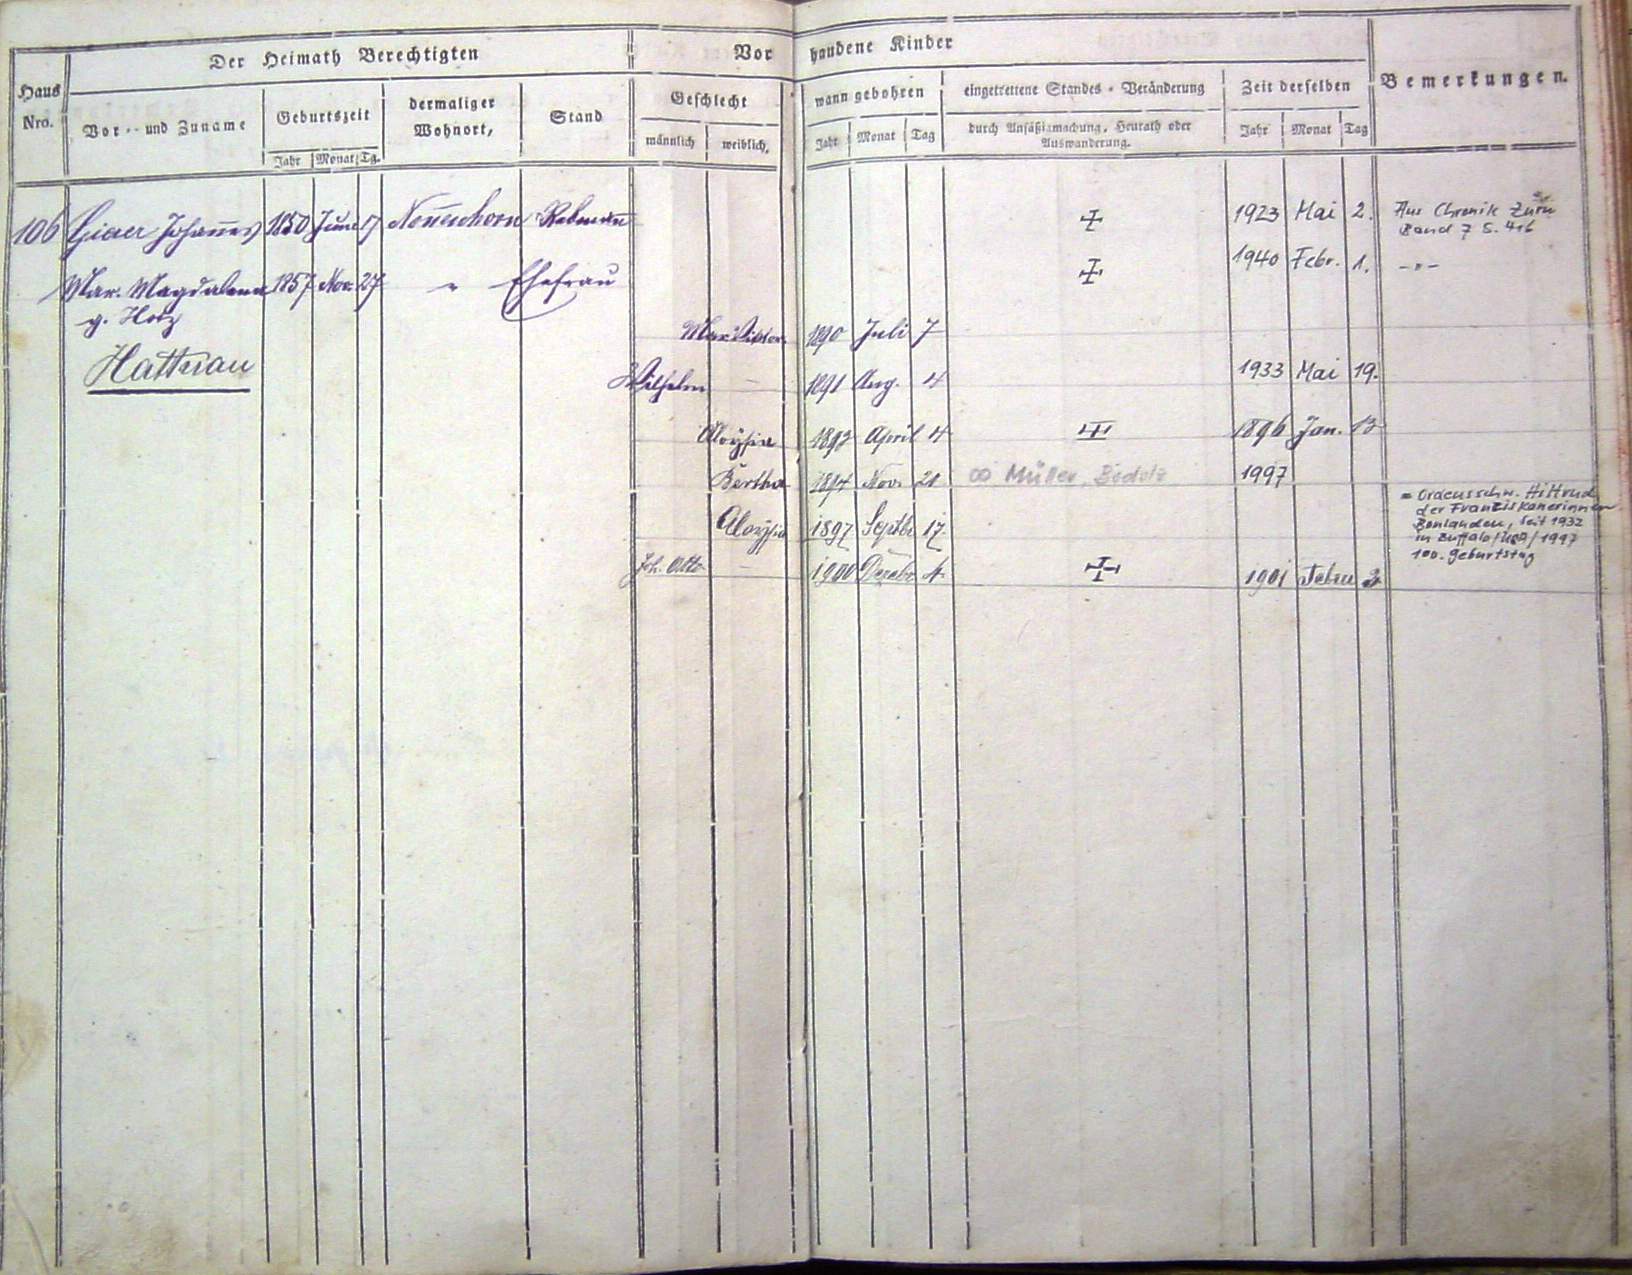 Der Heimath Berechtigten
Vorhandene Kinder
Bemerkungen.
Haus Nro.
Vor- und Zuname
Geburtszeit
dermaliger Wohnort,
Stand
Geschlecht
wann gebohren
eingetrettene Standes-Veränderung
Zeit derselben
Jahr Monat Tg.
männlich weiblich,
Jahr Monat Tag
durch Ansäßigmachung, Heurath oder Auswanderung.
Jahr Monat Tag
106 Johannes 1850 Juni 17 Nonnenhorn Rebmann 1923 Mai 2. Aus Chronik Zürn
Band 7 S. 416
Mar. Magdalena 1857 Nov. 27 " Ehefrau 1940 Febr. 1. -"-
g. Hotz
Hattnau
1890 Juli 7
Wilhelm - 1891 Aug. 4 1933 Mai 19.
Aloysia 1892 April 4 1896 Jan. 13
Bertha 1894 Nov. 21 ∞ Müller, 1997
Aloysia 1897 Septbr 17.
= Ordensschw. Hiltrud
der Franziskanerinnen
Bonlanden, seit 1932
in Buffalo/USA/1997
100. Geburtstag
Joh. Otto - 1900 Dezebr 4. 1901 Febru 3